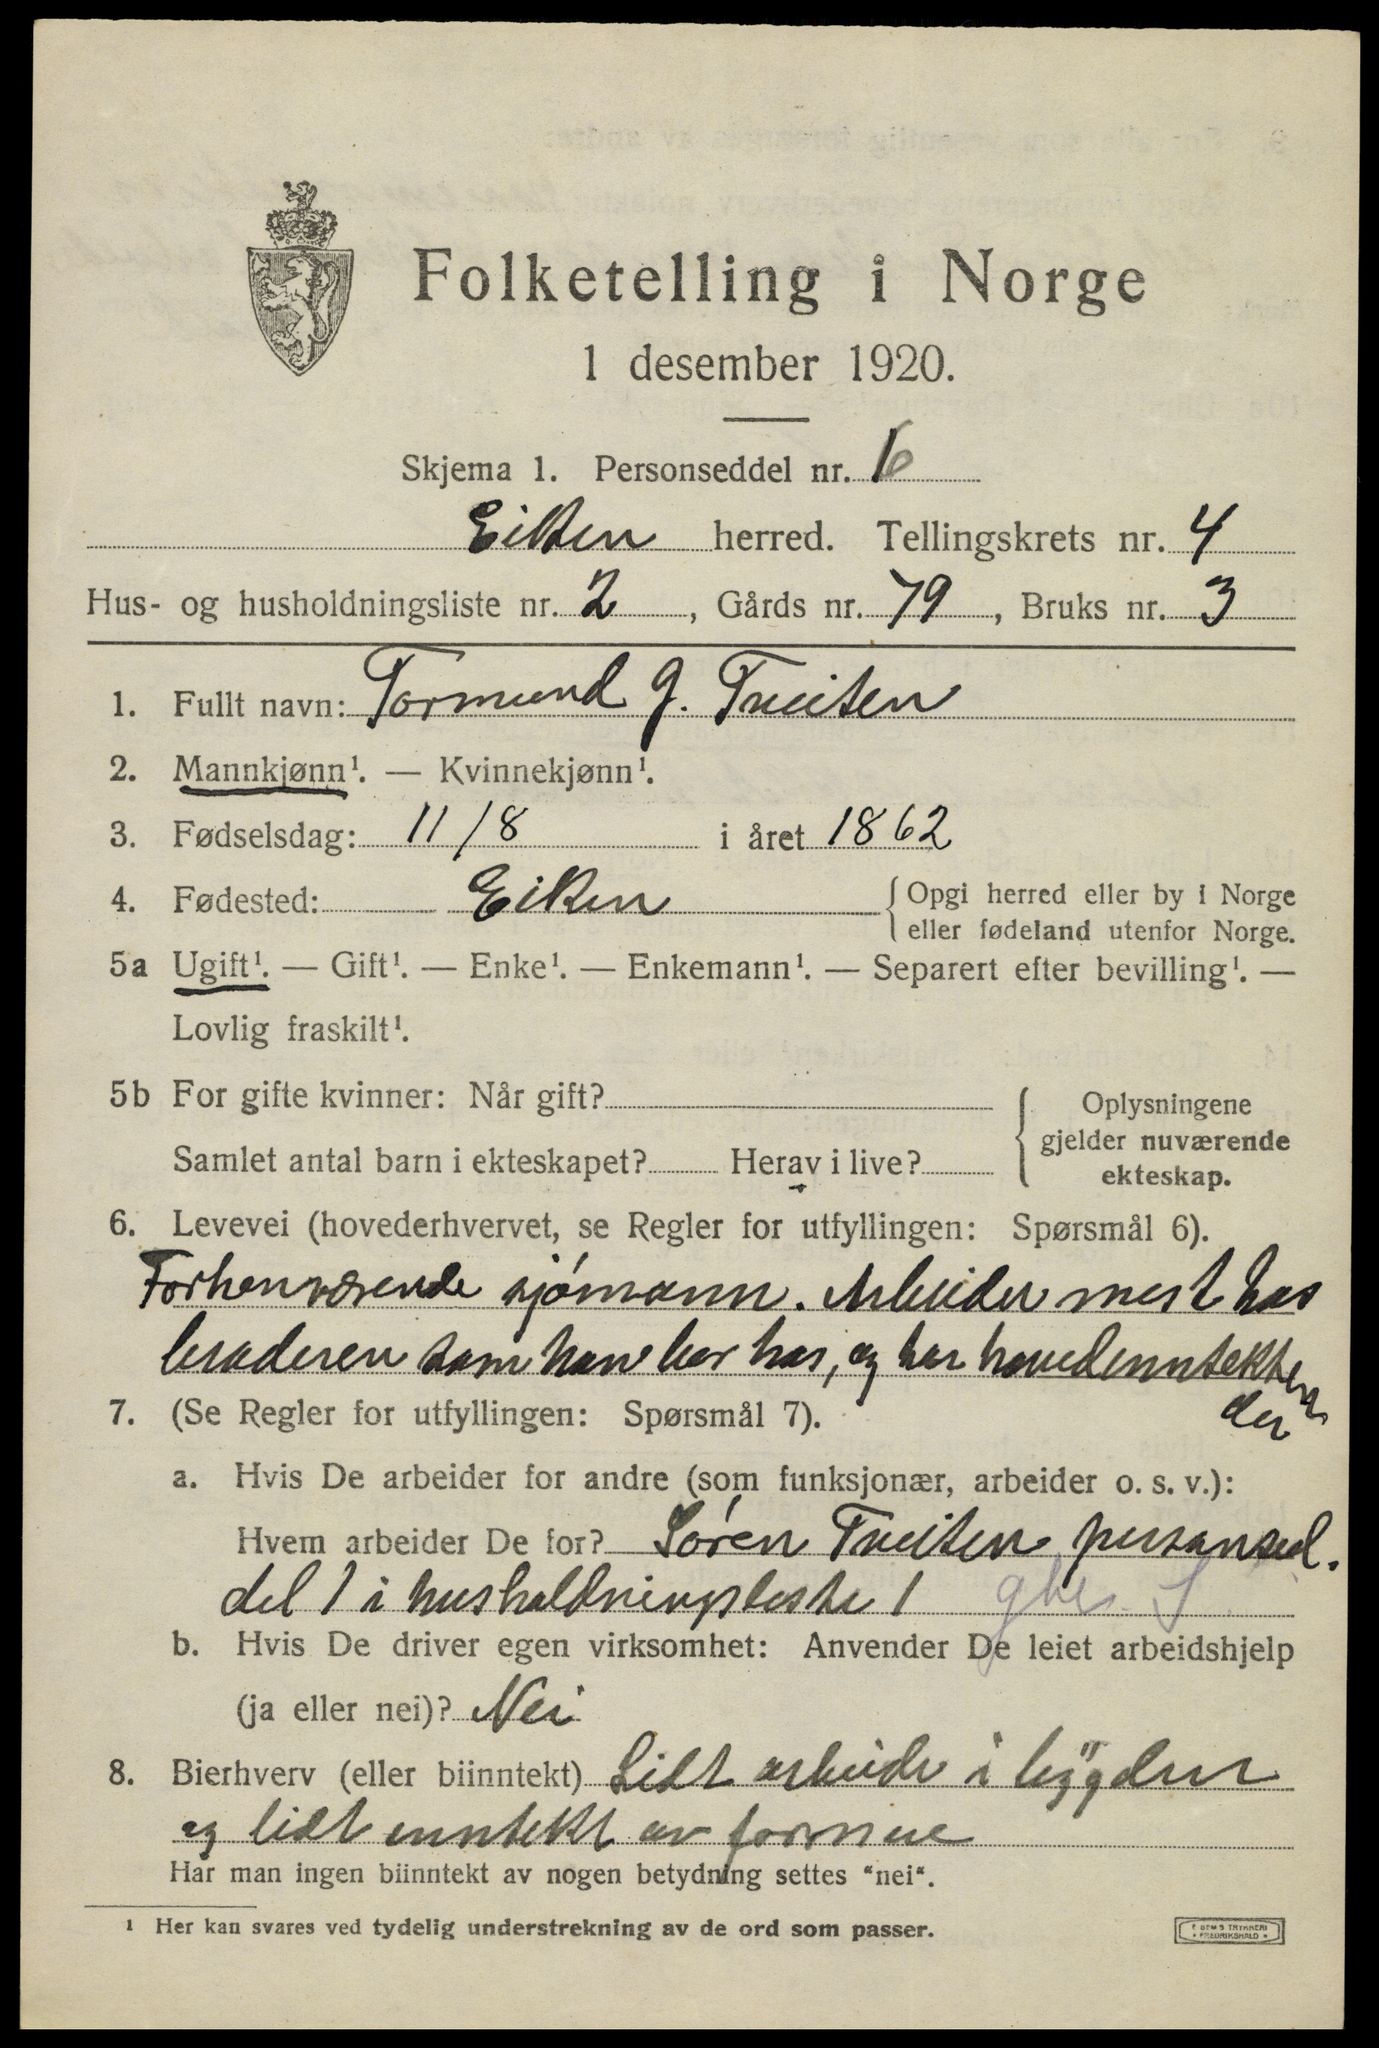 Folketelling i Norge
1 desember 1920.
Skjema 1. Personseddel nr. 6
Eiken herred. Tellingskrets nr. 4
Hus- og husholdningsliste nr. 2, Gårds nr. 79, Bruks nr. 3
1. Fullt navn: Tormund G. Tveiten
2. Mannkjønn¹. — Kvinnekjønn¹.
3. Fødselsdag: 11/8 i året 1862
4. Fødested: Eiken {Opgi herred eller by i Norge
eller fødeland utenfor Norge.
5a Ugift¹. — Gift¹. — Enke¹. — Enkemann¹. — Separert efter bevilling¹. —
Lovlig fraskilt¹.
5b For gifte kvinner: Når gift?
Samlet antal barn i ekteskapet? Herav i live?
{Oplysningene
gjelder nuværende
ekteskap.
6. Levevei (hovederhvervet, se Regler for utfyllingen: Spørsmål 6).
Forhenværende sjómann. Arbeider mest hos
broderen som han bor hos, og har hovedinntekten
der
7. (Se Regler for utfyllingen: Spørsmål 7).
a. Hvis De arbeider for andre (som funksjonær, arbeider o. s. v.):
Hvem arbeider De for? Sóren Tveiten personsed.
del 1 i husholdningsliste 1 gbr. S
b. Hvis De driver egen virksomhet: Anvender De leiet arbeidshjelp
(ja eller nei)? Nei
8. Bierhverv (eller biinntekt) Lidt arbeide i bygden
og lidt inntekt av formue
Har man ingen biinntekt av nogen betydning settes "nei".
¹ Her kan svares ved tydelig understrekning av de ord som passer.
TRYKKERI
FREDRIKSHALD